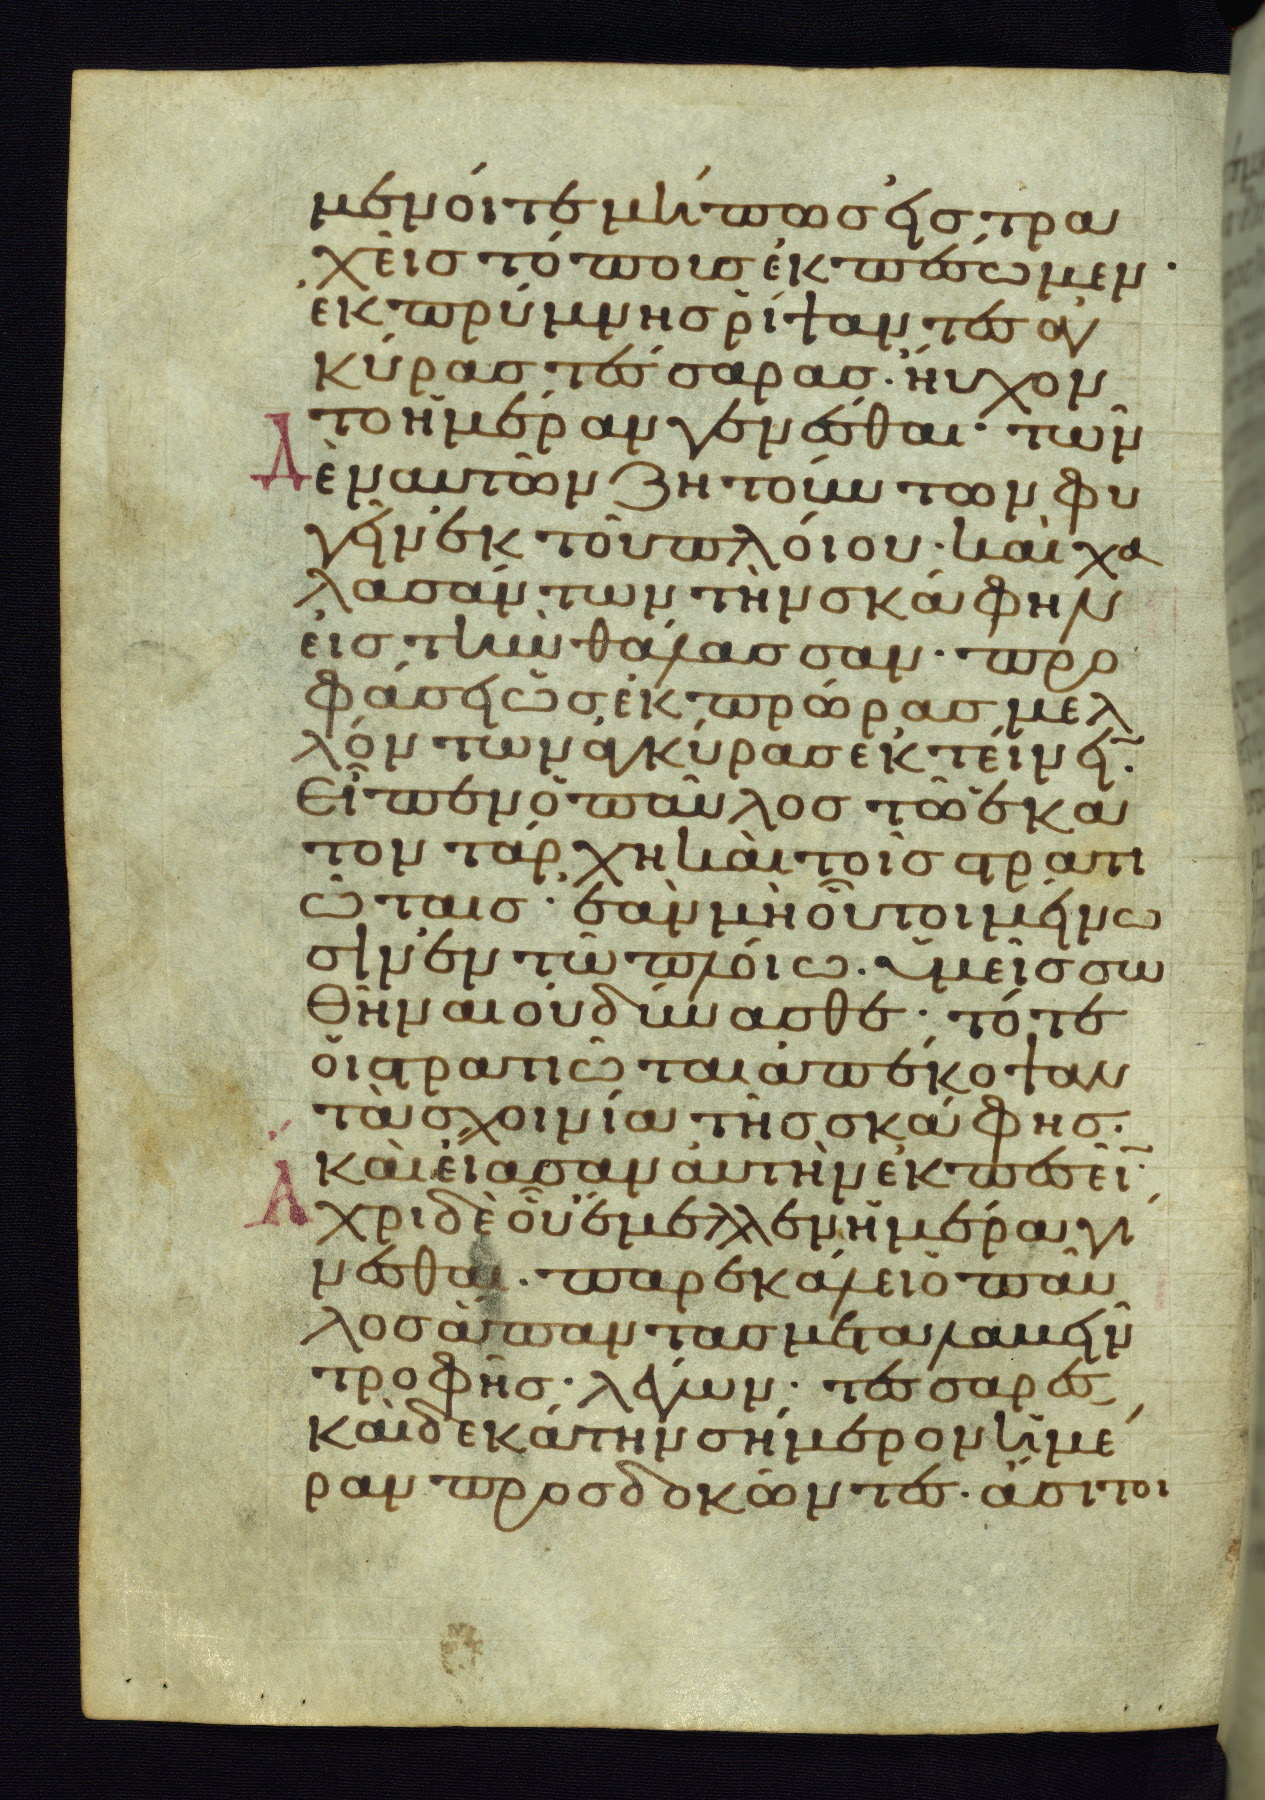 μενοί τε μήπως εἰς τρα
χεῖς τόπους ἐκπέσωμεν·
ἐκ πρύμνης ῥίψαντες ἀγ
κύρας τέσσαρας· ηὔχον
το ἡμέραν γενέσθαι· τῶν
Δὲ ναυτῶν ζητούντων φυ
γεῖν ἐκ τοῦ πλοίου· καὶ χα
λασάντων τὴν σκάφην
εἰς τὴν θάλασσαν· προ
φάσει ὡς ἐκ πρώρας μελ
λόντων ἀγκύρας ἐκτείνει̃·
Εἶπεν ὁ παῦλος τῶ ἑκα
τοντάρχη καὶ τοῖς στρατι
ώταις· ἐὰν μὴ οὗτοι μείνω
σιν ἐν τῶ πλοίω· ὑμεῖς σω
θῆναι οὐ δύνασθε· τότε
οἱ στρατιῶται ἀπέκοψαν
τὰ σχοινία τῆς σκάφης·
καὶ εἴασαν αὐτὴν ἐκπεσεῖ̃·
Ἄχρι δὲ οὗ ἔμελλεν ἡμέρα γί
νεσθαι· παρεκάλει ὁ παῦ
λος ἅπαντας μεταλαμεῖν
τροφῆς· λέγων· τεσσαρες
καιδεκάτην σήμερον ἡμέ
ραν προσδοκῶντες· ἄσιτοι